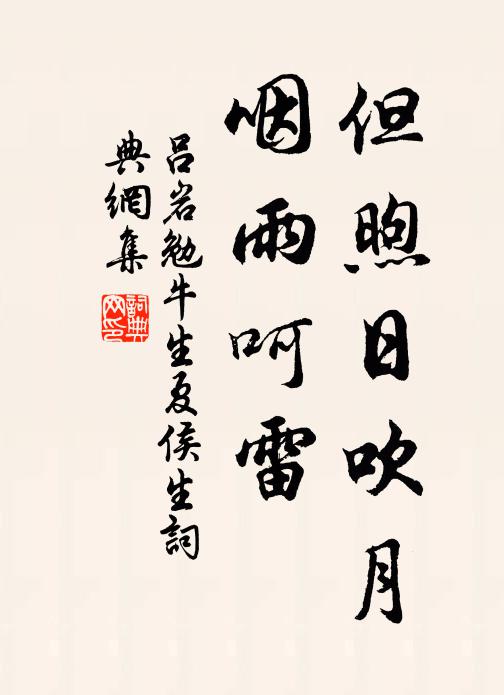 但煦日吹月
咽雨呵雷
吕岩勉牛生夏侯生詞
典網集
詞典網印